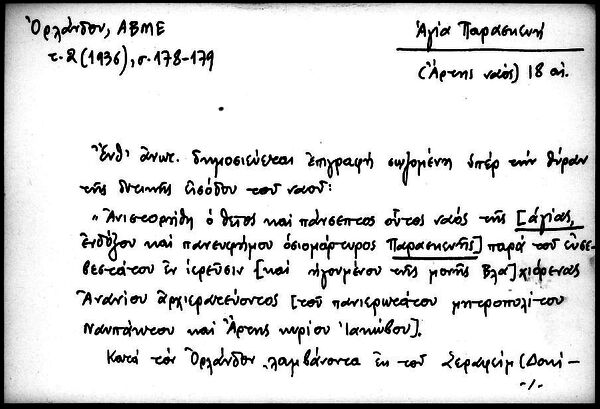 Ὀρλάνδου, ΑΒΜΕ
Ἁγία Παρασκευή
τ. 2 (1936), σ. 178-179
(Ἄρτης ναός) 18 αἰ.
Ἔνθ' ἀνωτ. δημοσιεύεται ἐπιγραφή σωζομένη ὑπέρ τήν θύραν
τῆς δυτικῆς εἰσόδου τοῦ ναοῦ:
"Ἀνιστορήθη ὁ θεῖος καί πάνσεπτος οὗτος ναός τῆς [ἁγίας,
ἐνδόξου καί πανευφήμου ὁσιομάρτυρος Παρασκευῆς] παρά τοῦ εὐσε-
βεστάτου ἐν ἱερεῦσιν [καί ἡγουμένου τῆς μονῆς Βλα]χιόρενας
Ἀνανίου ἀρχιερατεύοντος [τοῦ πανιερωτάτου μητροπολίτου
Ναυπάκτου καί Ἄρτης κυρίου Ἰακώβου].
Κατά τόν Ὀρλάνδον λαμβάνοντα ἐκ τοῦ Σεραφείμ (Δοκί-
-/.